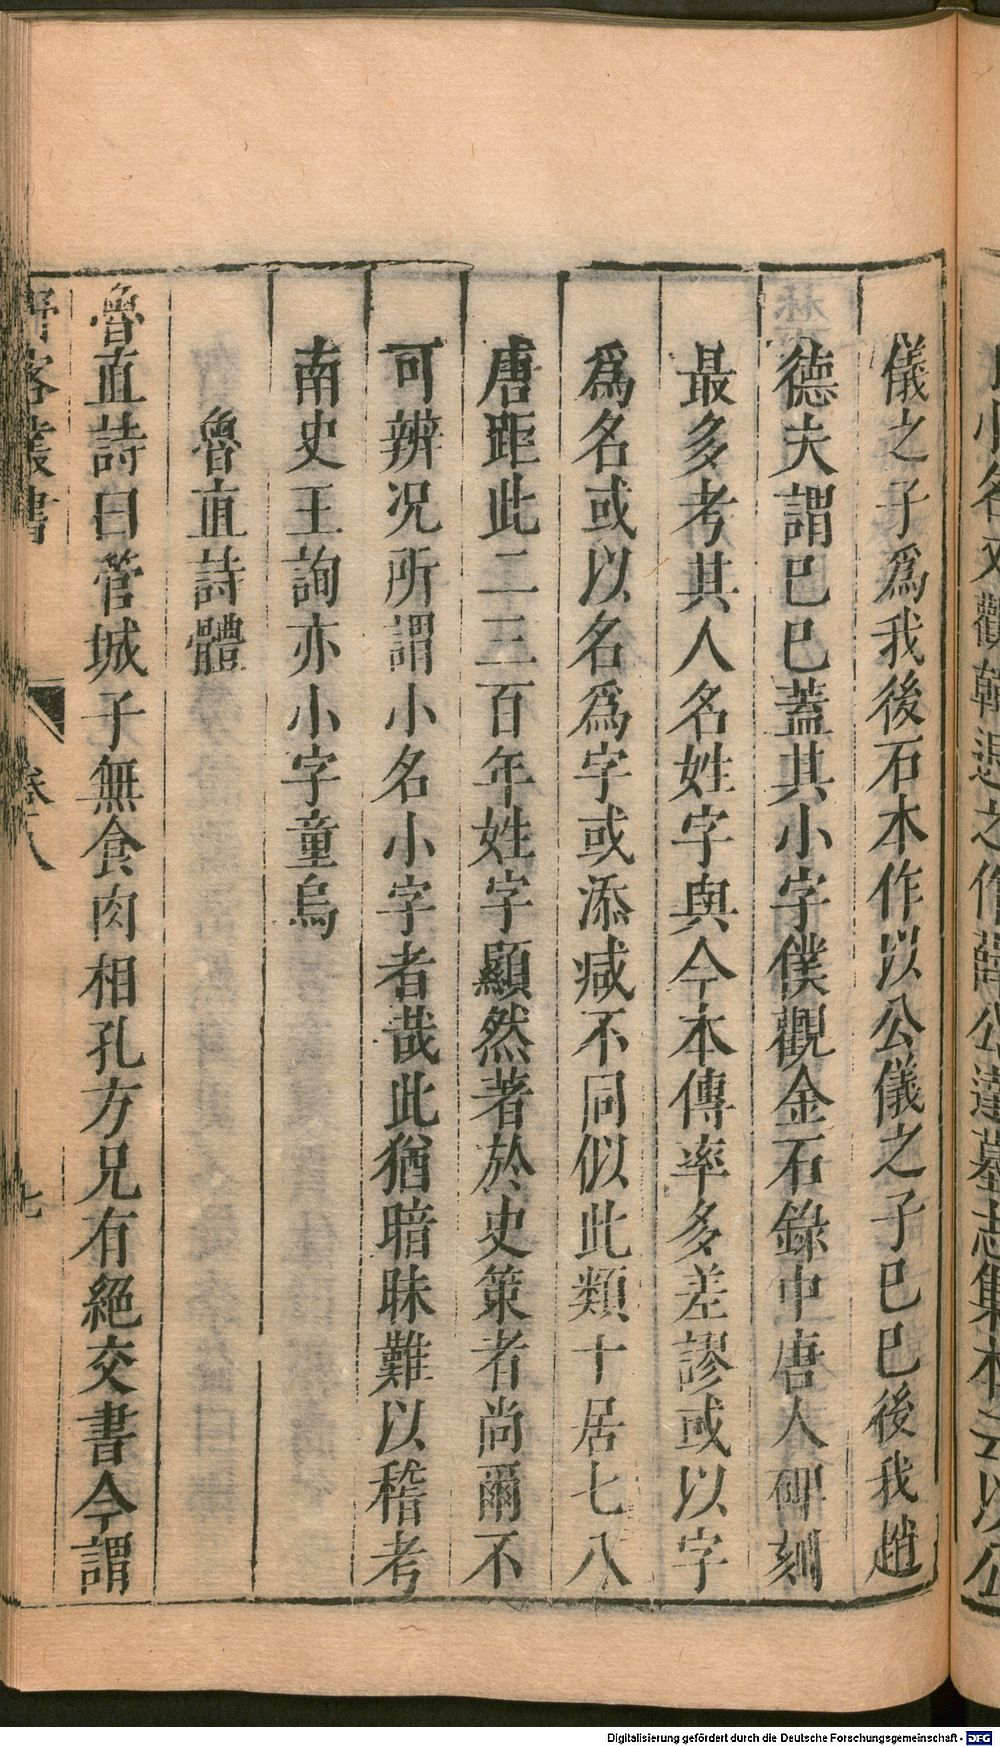 儀之子爲我後石本作以公儀之子巳巳後我趙
德夫謂巳巳蓋其小字僕觀金石錄中唐人碑刻
最多考其人名姓字與今本傳率多差謬或以字
爲名或以名爲字或添减不同似此類十居七八
唐距此二三百年姓字顯然著於史策者尚爾不
可辨況所謂小名小字者哉此猶暗昧難以稽考
南史王詢亦小字童烏
魯直詩體
魯直詩曰管城子無食肉相孔方兄有絕交書今謂
野客叢書
卷八
七
Digitalisierung gefördert durch die Deutsche Forschungsgemeinschaft - DFG